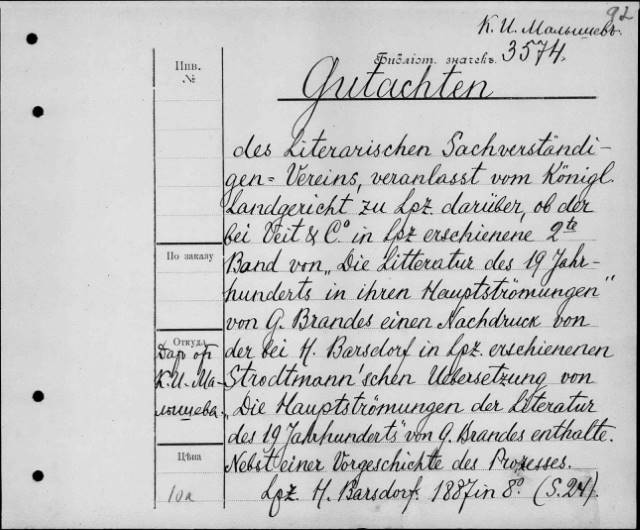 92
К. И. Малышевъ.
Инв.
№
Библіот. значекъ. 3574.
Gutachten
des Literarischen Sachverständi-
gen= Vereins, veranlasst vom Königl.
Landgericht zu Lpz. darüber, ob der
bei Veit & Cº. in Lpz erschienene 2te
По заказу
Band von „Die Litteratur des 19 Jahr-
hunderts in ihren Hauptströmungen"
von G. Brandes einen Nachdruck von
Откуда
der bei H. Barsdorf in Lpz. erschienenen
Даръ отъ
К. И. Ма-
лышева.
Strodtmann'schen Uebersetzung von
„Die Hauptströmungen der Literatur
des 19 Jahrhunderts" von G. Brandes enthalte.
Цѣна
Nebst einer Vorgeschichte des Prozesses.
10а
Lpz. H. Barsdorf. 1887 in 8º. (S. 24).